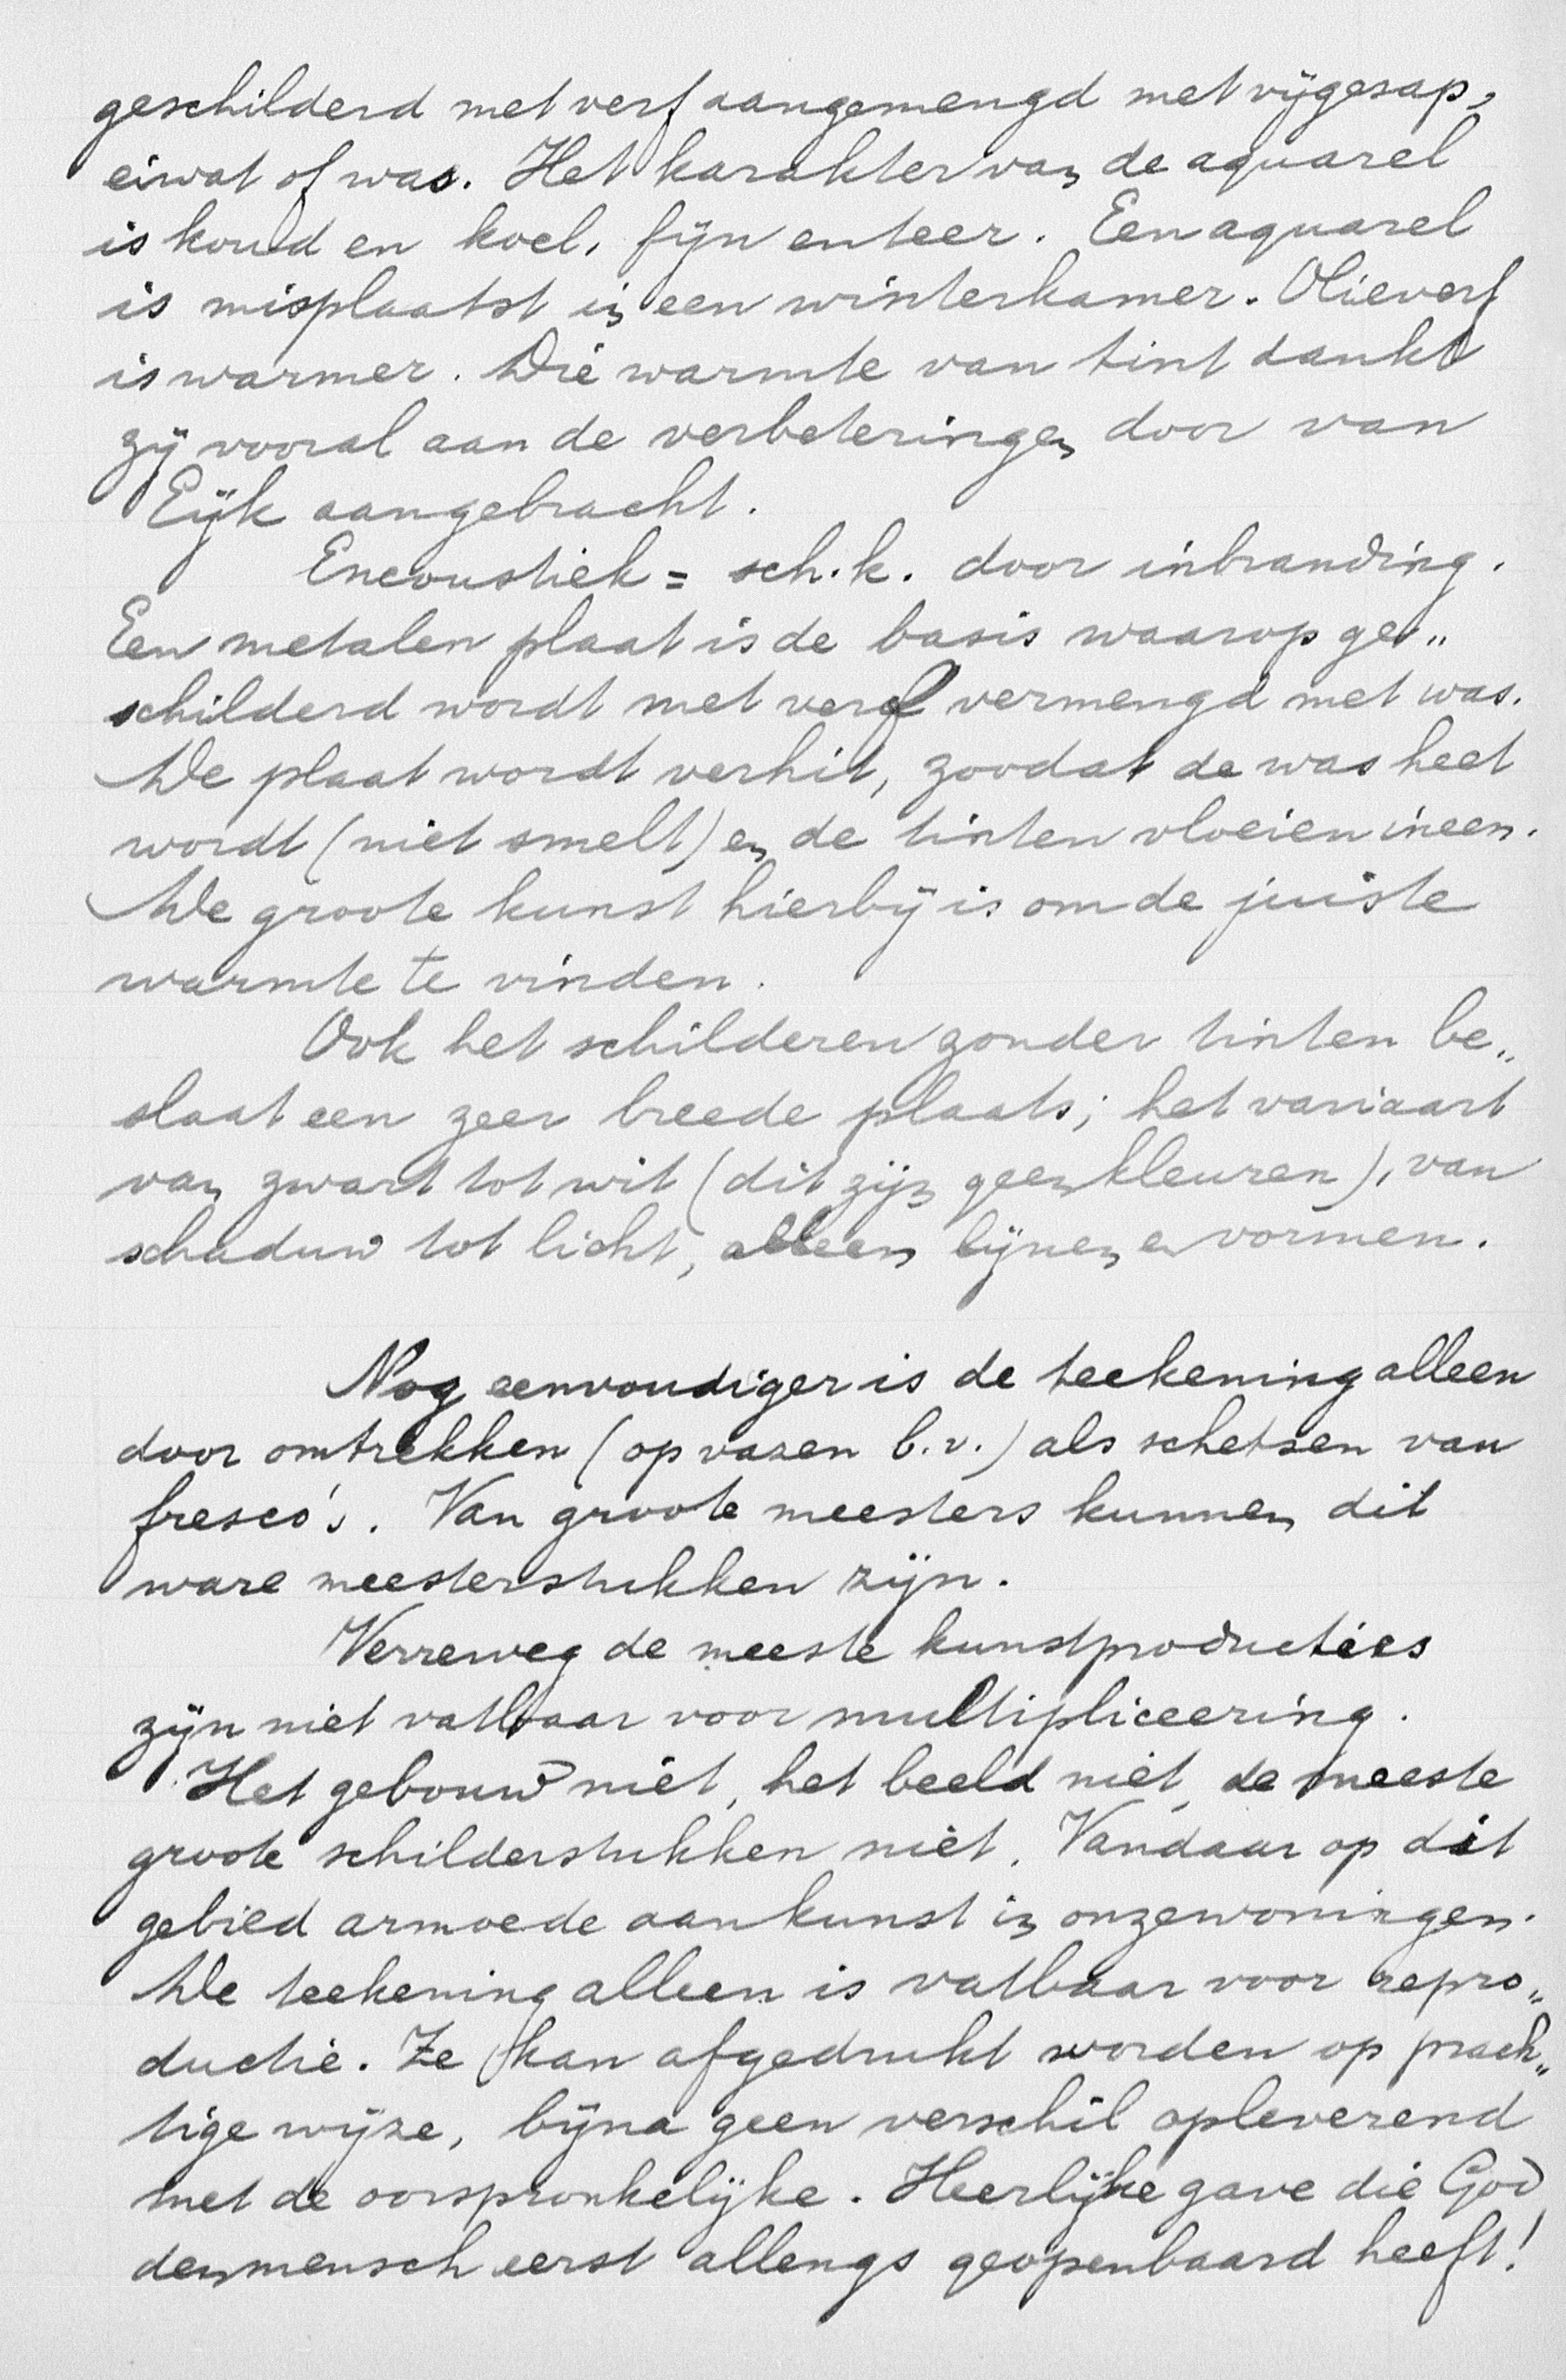 geschilderd met verf aangemengd met vijgesap,
eiwat of was. Het karakter van de aquarel
is koud en koel, fijn en teer. Een aquarel
is misplaatst in een winterkamer. Olieverf
is warmer. Die warmte van tint dankt
zij vooral aan de verbeteringen door van
Eijk aangebracht.
Encoustiek = sch.k. door inbranding.
Een metalen plaat is de basis waarop ge„
schilderd wordt met verf vermengd met was.
De plaat wordt verhit, zoodat de was heet
wordt (niet smelt) en de tinten vloeien ineen.
De groote kunst hierbij is om de juiste
warmte te vinden.
Ook het schilderen zonder tinten be„
slaat een zeer breede plaats; het variaart
van zwart tot wit (dit zijn geen kleuren), van
schaduw tot licht, alleen lijnen en vormen.
Nog eenvoudiger is de teekening alleen
door omtrekken (op vazen b.v.) als schetsen van
fresco's. Van groote meesters kunnen dit
ware meesterstukken zijn.
Verreweg de meeste kunstproducties
zijn niet vatbaar voor multipliceering.
Het gebouw niet, het beeld niet, de meeste
groote schilderstukken niet. Vandaar op dit
gebied armoede aan kunst in onze woningen.
De teekening alleen is vatbaar voor repro„
ductie. Ze kan afgedrukt worden op prach„
tige wijze, bijna geen verschil opleverend
met de oorspronkelijke. Heerlijke gave die God
den mensch eerst allengs geopenbaard heeft!